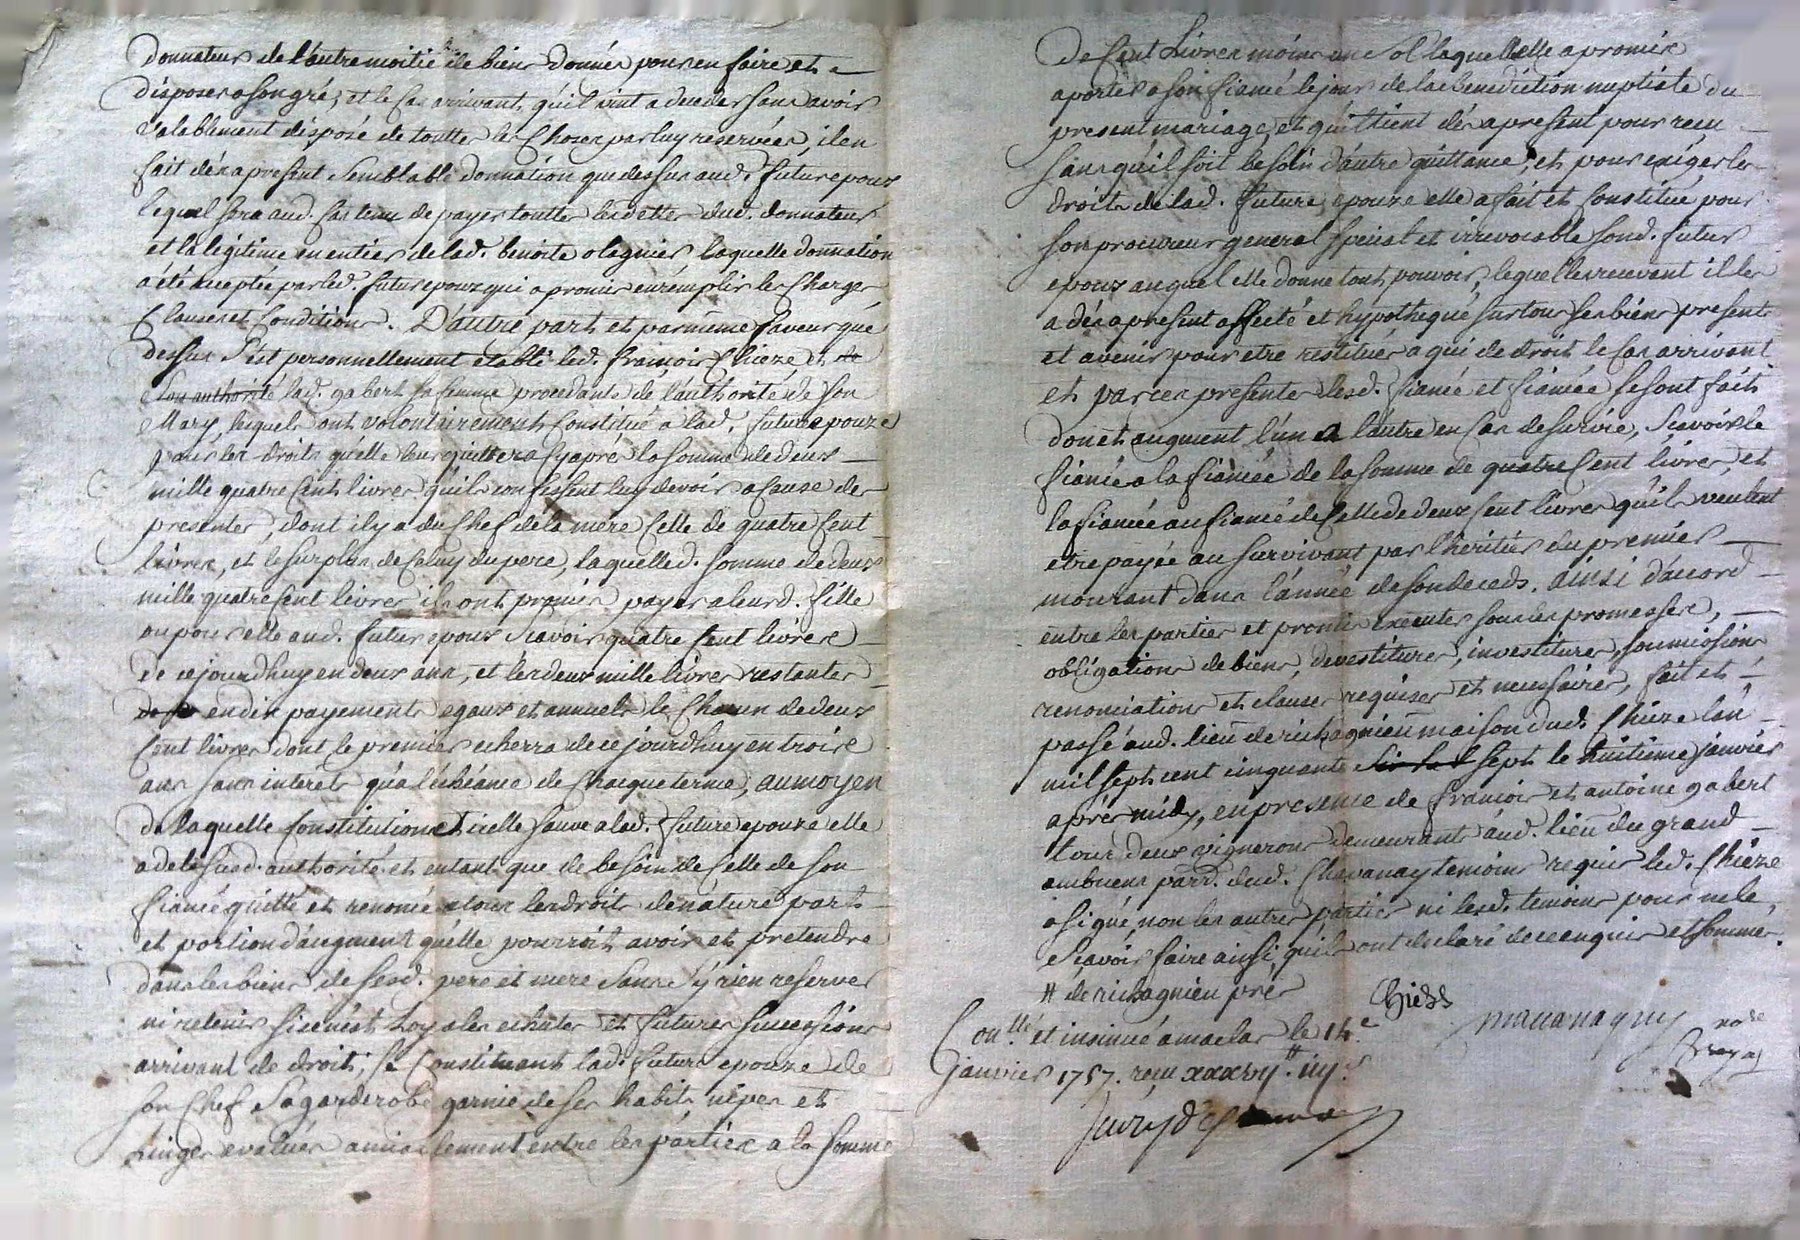 donnateur de l'autre moitié de biens donnés pour en faire et
disposer a son gré, et le cas arrivant qu'il vint a deceder sans avoir
valablement disposé de toutte les choses par luy reservées, il en
fait dés a present semblable donnation que dessus aud. futur epoux
lequel sera aud. cas tenu de payer toutte les dettes dud. donnateur
et la legitime en entier de lad. benoite olagnier, laquelle donnation
a été aceptée par led. futur epoux qui a promis en remplir les charges
clauses et conditions. D'autre part et par même faveur que
dessus s'est personnellement etabli led. françois chieze et
son authorité lad. gabert sa femme procedante de l'authorité de son
mary lesquels ont volontairement constitué a lad. future epouze
pour les droits qu'elle leur quittera cy aprés la somme de deux
mille quatre cent livres qu'ils confessent luy devoir a cause des
presentes, dont il y a du chef de la mere celle de quatre cent
livres, et le surplus de celuy du pere, laquelled. somme de deux
mille quatre cent livres ils ont promis payer a leurd. fille
ou pour elle aud. futur epoux sçavoir quatre cent livres
de ce jourdhuy en deux ans, et les deux mille livres restantes
en dix payements egaux et annuels le chacun de deux
cent livres dont le premier echerra de ce jourdhuy en trois
ans sans interets qu'a l'echéance de chacque terme, au moyen
de laquelle constitution et icelle sauve a lad. future epouze elle
a de la susd. authorité et entant que de besoin de celle de son
fiancé quitté et renoncé a tous les droits de nature part
et portion d'augment qu'elle pourroit avoir et pretendre
dans les biens de sesd. pere et mere sans s'y rien reserver
ni retenir si ce n'est loyales echutes et futures successions
arrivant de droit; se constituant lad. future epouze de
son chef sa garderobe garnie de ses habits nipes et
linges evalués amiablement entre les parties a la somme
de cent livres moins un sol laquelle elle a promis
aporter a son fiancé le jour de la benediction nuptiale du
present mariage et qu'il tient dés a present pour recu
sans qu'il soit besoin d'autre quittance, et pour exiger les
droits de lad. future epouze elle a fait et constitué pour
son procureur general special et irrevocable sond. futur
epoux auquel elle donne tout pouvoir, lequel les recevant il les
a dés a present affecté et hypothequé sur tous ses biens presents
et avenir pour etre restitués a qui de droit le cas arrivant
et par ces presentes lesd. fiancé et fiancée se sont faits
don et augment l'un a l'autre en cas de survie, sçavoir le
fiancé a la fiancée de la somme de quatre cent livres, et
la fiancée au fiancé de celle de deux cent livres qu'ils veulent
etre payée au survivant par l'heritier du premier
mourant dans l'année de son deceds. ainsi d'accord
entre les parties et promis executer sous les promesses,
obligations de biens devestitures, investitures, soumissions
renonciations et clauses requises et necessaires, fait et
passé aud. lieu de richagnieu maison dud. chieze l'an
mil sept cent cinquante sept le huitieme janvier
aprés midy, en presence de francois et antoine gabert
tous deux vignerons demeurants aud. lieu du grand
ambuens parr. dud. chavanay temoins requis led. chieze
a signé, non les autres parties ni lesd. temoins pour ne le
scavoir faire ainsi qu'ils ont declaré de ce enquis et sommés.
# de richagnieu prés
Chiess
Con.llé et insinué a maclas le 14.e
janvier 1757. recu xxxvij.tt iiij.s